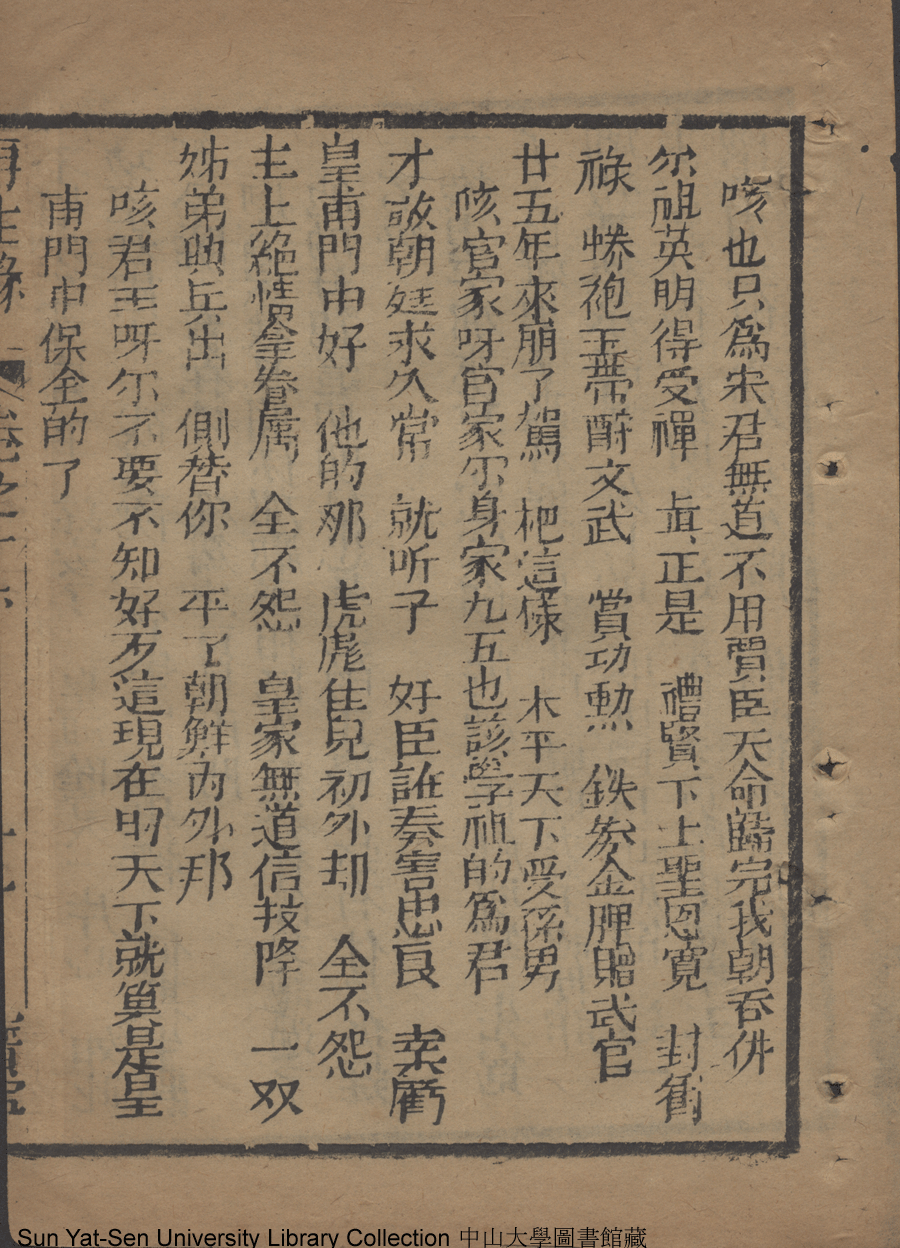 咳也只為宋君無道不用賈臣天命歸完我朝吞併
尔祖英明得受禪　眞正是　禮賢下士聖恩寬　封銜
祿　蟒袍玉帶酧文武　賞功勲　鉄券金牌贈武官
廿五年來崩了駕　杷這樣　木平天下受係男
咳官家呀官家尔身家九五也該學祖的為君
才故朝廷求久常　就听子　好臣誰奏害忠良　幸虧
皇甫門中好　他的那　虎彪隹兒初外却　全不怨
主上絶情拿眷属　全不怨　皇家無道信技降　一双
姊弟典兵出　側替你　平了朝鮮內外邦
咳君王呀尔不要不知好歹這現在明天下就算是皇
甫門中保全的了
再生緣　卷之十六
Sun Yat-Sen University Library Collection 中山大學圖書館藏